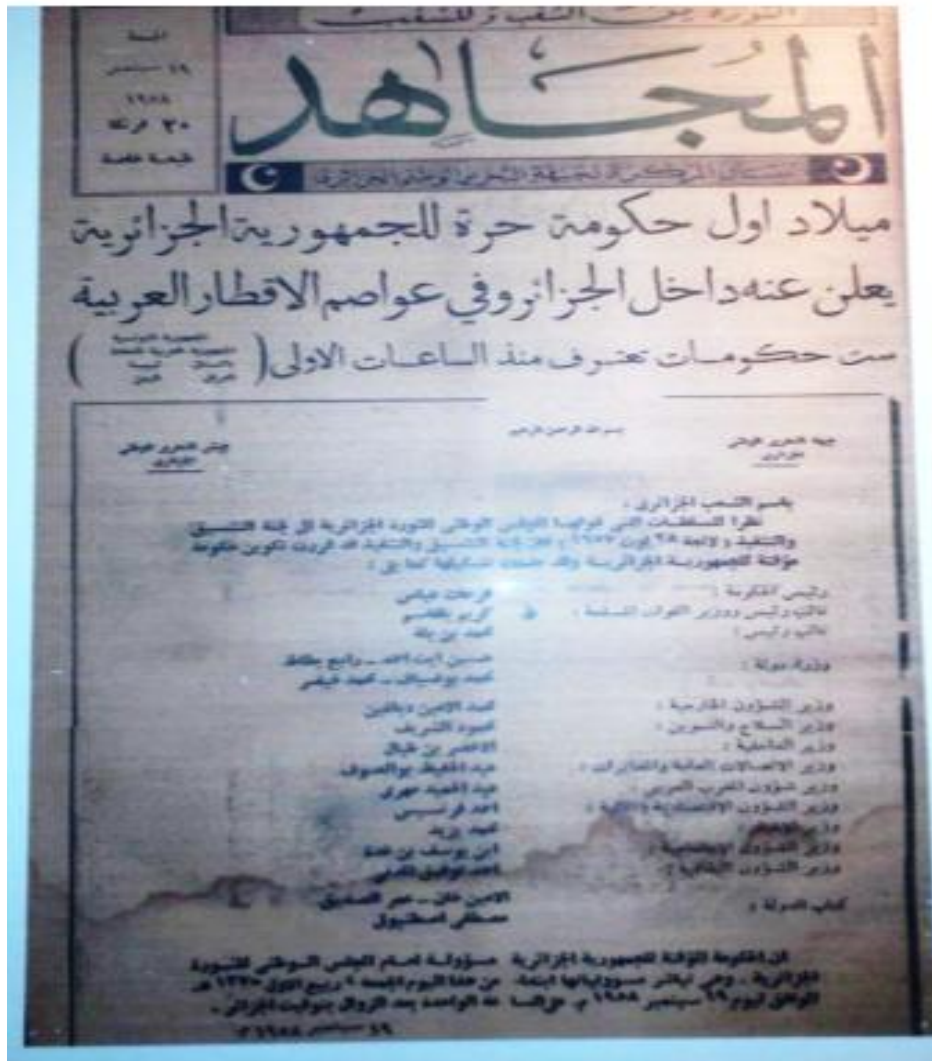 الثورة من الشعب و للشعب
١٩ سبتمبر
١٩٥٨
٣٠ فرنكا
طبعة خاصة
المُجَاهد
اللسان المركزي لجبهة التحرير الوطني الجزائري
ميلاد اول حكومة حرة للجمهورية الجزائرية
يعلن عنه داخل الجزائر وفي عواصم الاقطار العربية
ست حكومات تعترف منذ الساعات الاولى (
الجمهورية التونسية
الجمهورية العربية المتحدة
ليبيا
العراق اليمن
)
بسم الله الرحمن الرحيم
جبهة التحرير الوطني
الجزائري
جيش التحرير الوطني
الجزائري
باسم الشعب الجزائري ،
نظرا للسلطات التي خولها المجلس الوطني للثورة الجزائرية الى لجنة التنسيق
والتنفيذ و لائحة ٢٨ اوت ١٩٥٧ ، فان لجنة التنسيق والتنفيذ قد قررت تكوين حكومة
مؤقتة للجمهورية الجزائرية وقد تشكيلها كما يلي :
رئيس الحكومة : فرحات عباس
نائب رئيس ووزير القوات المسلحة : كريم بلقاسم
نائب رئيس : احمد بن بلة
وزراء دولة : حسين ايت احمد ـ رابح بطاط
محمد بوضياف ـ محمد خيضر
وزير الشؤون الخارجية : محمد الامين دباغين
وزير السلاح والتموين : محمود الشريف
وزير الداخلية : الاخضر بن طبال
وزير الاتصالات العامة والمخابرات : عبد الحفيظ بوالصوف
وزير شؤون المغرب العربي : عبد الحميد مهري
وزير الشؤون الاقتصادية والمالية : احمد فرنسيس
وزير الاخبار : محمد يزيد
وزير الشؤون الاجتماعية : ابن يوسف بن خدة
وزير الشؤون الثقافية : احمد توفيق المدني
كتاب الدولة : الامين خان ـ عمر الصديق
مصطفى اسطنبولي
ان الحكومة المؤقتة للجمهورية الجزائرية مسؤولة امام المجلس الوطني للثورة
الجزائرية . وهي تباشر مسؤولياتها ابتداء من هذا اليوم الجمعة ربيع الاول
الموافق ليوم ١٩ سبتمبر ١٩٥٨ م. على الساعة الواحدة بعد الزوال بتوقيت الجزائر .
١٩ سبتمبر ١٩٥٨